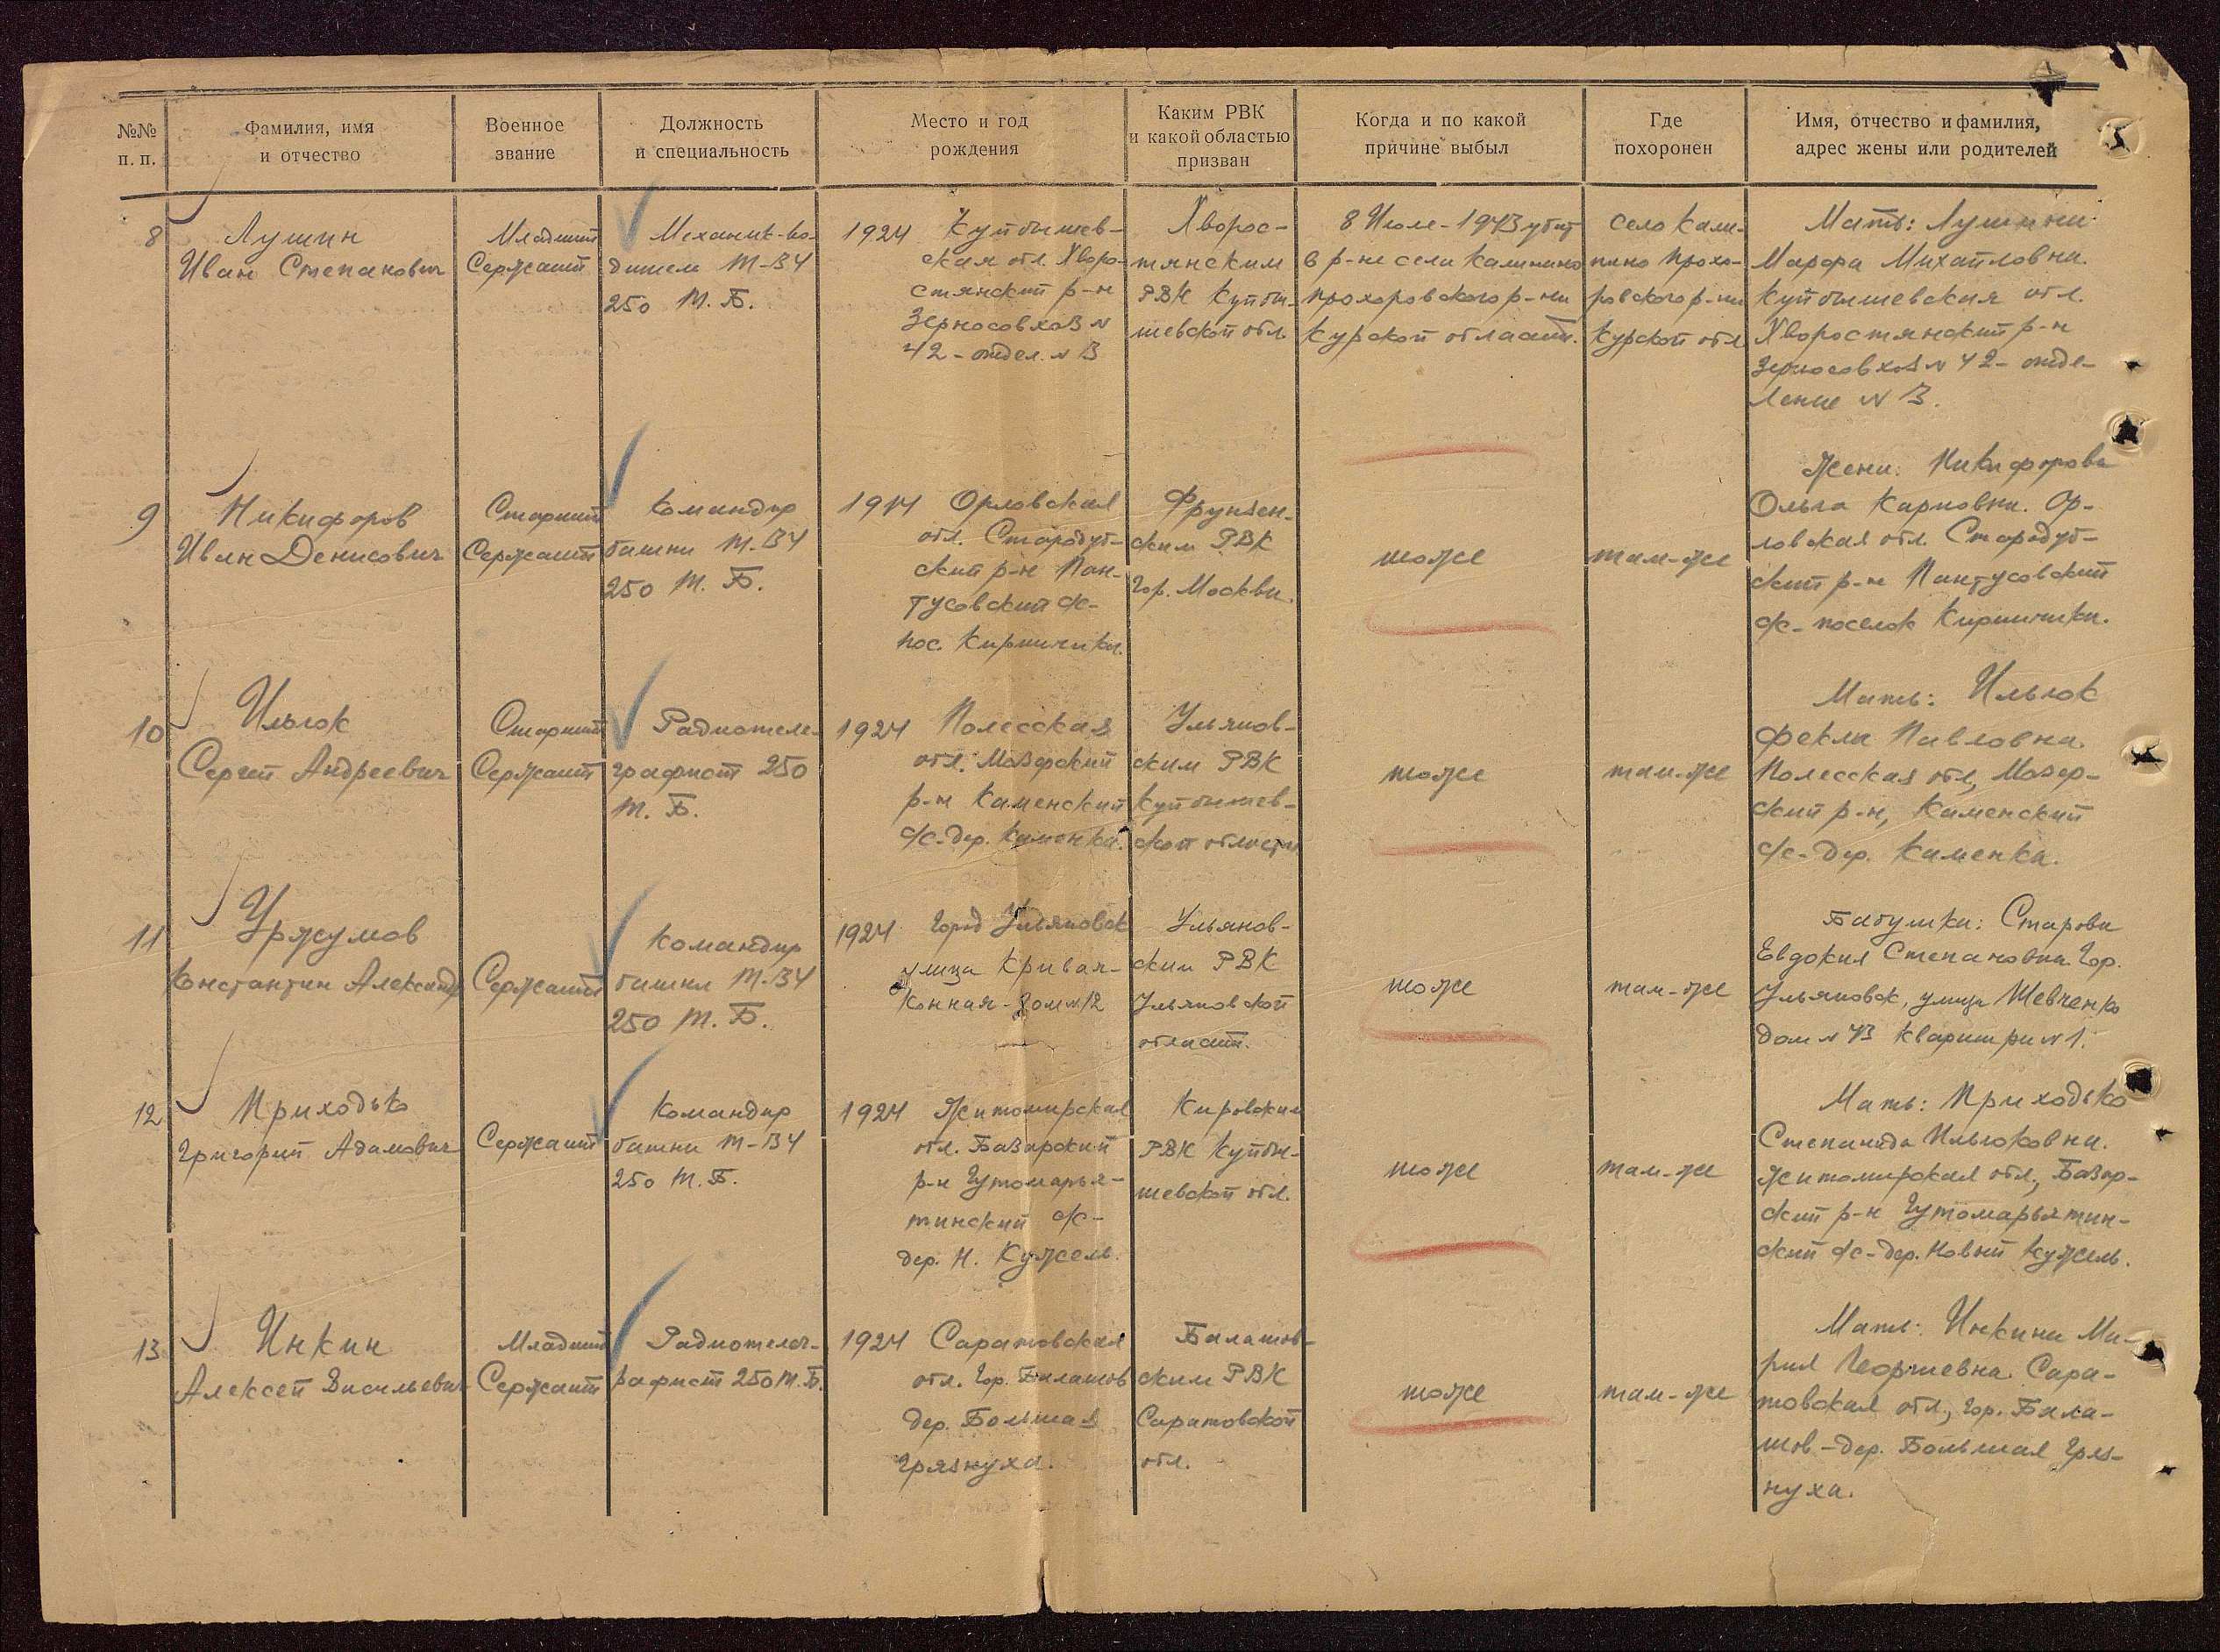 №№ п. п.
Фамилия, имя и отчество
Военное звание
Должность и специальность
Место и год рождения
Каким РВК и какой областью призван
Когда и по какой причине выбыл
Где похоронен
Имя, отчество и фамилия, адрес жены или родителей
8
Лушин
Иван Степанович
Младший
Сержант
Механик-во-
дитель Т-34
250 Т. Б.
1924 Куйбышев-
ская обл. Хворо-
стянский р-н
Зерносовхоз №
42 - отдел. № 3
Хворос-
тянским
РВК Куйбы-
шевской обл.
8 Июле - 1943 убит
в р-не села Калинино
Прохоровского р-на
Курской области.
село Кали-
нино Прохо-
ровского р-на
Курской обл
Мать: Лушина
Марфа Михайловна.
Куйбышевская обл.
Хворостянский р-н
Зерносовхоз № 42 - отде-
ление № 3.
9
Никифоров
Иван Денисович
Старший
Сержант
Командир
башни Т-34
250 Т. Б.
1914 Орловская
обл. Стародуб-
ский р-н Пан-
тусовский с/с-
пос. Кирпичики.
Фрунзен-
ским РВК
Гор. Москвы.
тоже
там-же
Жена: Никифорова
Ольга Карповна. Ор-
ловская обл. Стародуб-
ский р-н Пантусовский
с/с - поселок Кирпичики.
10
Ильюк
Сергей Андреевич
Старший
Сержант
Радиотеле-
графист 250
Т. Б.
1924 Полесская
обл. Мозерский
р-н Каменский
с/с-дер. Каменка.
Ульянов-
ским РВК
Куйбышев-
ской области
тоже
там-же
Мать: Ильюк
Фекла Павловна.
Полесская обл, Мозер-
ский р-н, Каменский
с/с - дер. Каменка.
11
Уржумов
Константин Александр
Сержант
Командир
башни Т-34
250 Т. Б.
1924 Город Ульяновск
улица Кривая-
Конная - дом № 12
Ульянов-
ским РВК
Ульяновской
области.
тоже
там-же
Бабушка: Старова
Евдокия Степановна. Гор.
Ульяновск, улица Шевченко
дом № 43 квартира № 1.
12
Приходько
Григорий Адамович
Сержант
Командир
башни Т-34
250 Т. Б.
1924 Житомирская
обл. Базарский
р-н Гутомарья-
тинский с/с-
дер. Н. Кужель.
Кировским
РВК Куйбы-
шевской обл.
тоже
там-же
Мать: Приходько
Степанида Ильюковна.
Житомирская обл, Базар-
ский р-н Гутомарьятин-
ский с/с - дер. Новый Кужель.
13
Инкин
Алексей Васильевич
Младший
Сержант
Радиотелег-
рафист 250 Т. Б.
1924 Саратовская
обл. Гор. Балашов
дер. Большая
Грязнуха.
Балашов-
ским РВК
Саратовской
обл.
тоже
там-же
Мать: Инкина Ма-
рия Георгиевна. Сара-
товская обл, гор. Бала-
шов - дер. Большая Гряз-
нуха.